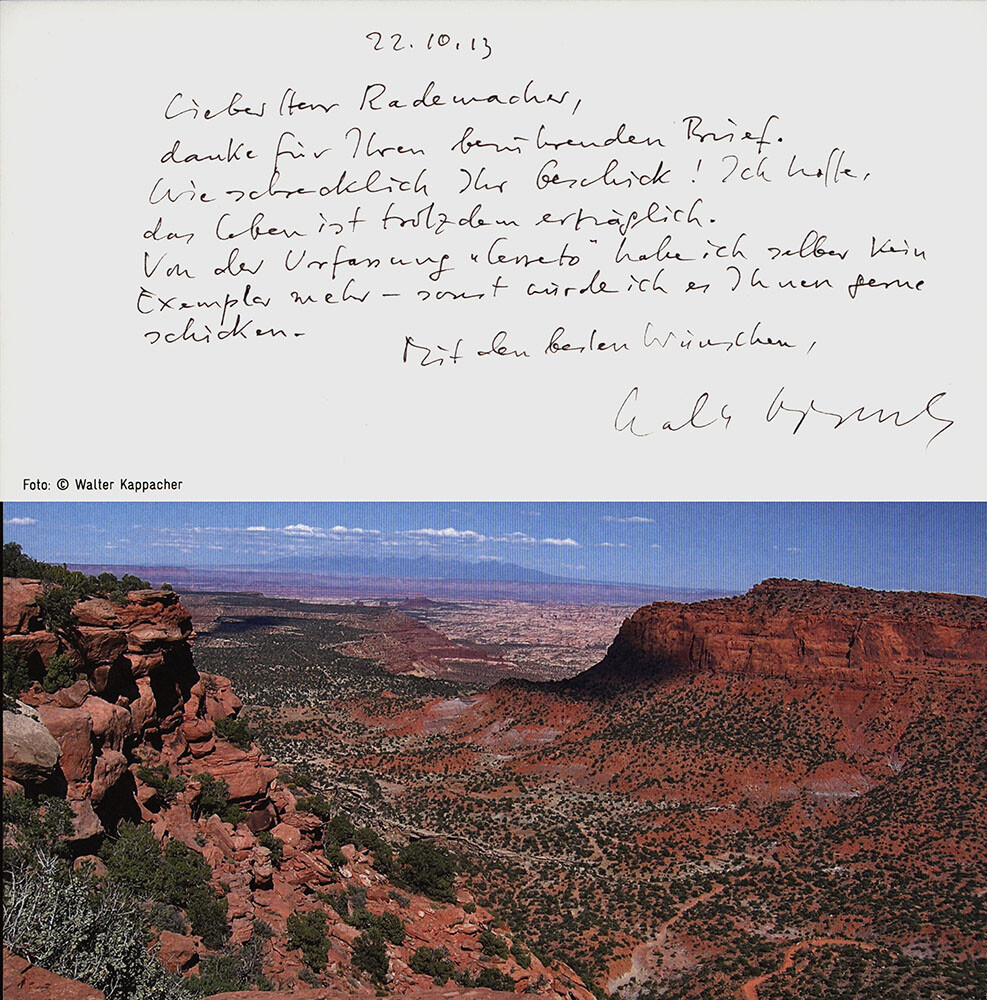 22.10.13
Lieber Herr Rademacher,
danke für Ihren berührenden Brief.
Wie schrecklich Ihr Geschick! Ich hoffe,
das Leben ist trotzdem erträglich.
Von der Urfassung "Cerreto" habe ich selber kein
Exemplar mehr – sonst würde ich es Ihnen gerne
schicken.
Mit den besten Wünschen,
Walter Kappacher
Foto: © Walter Kappacher